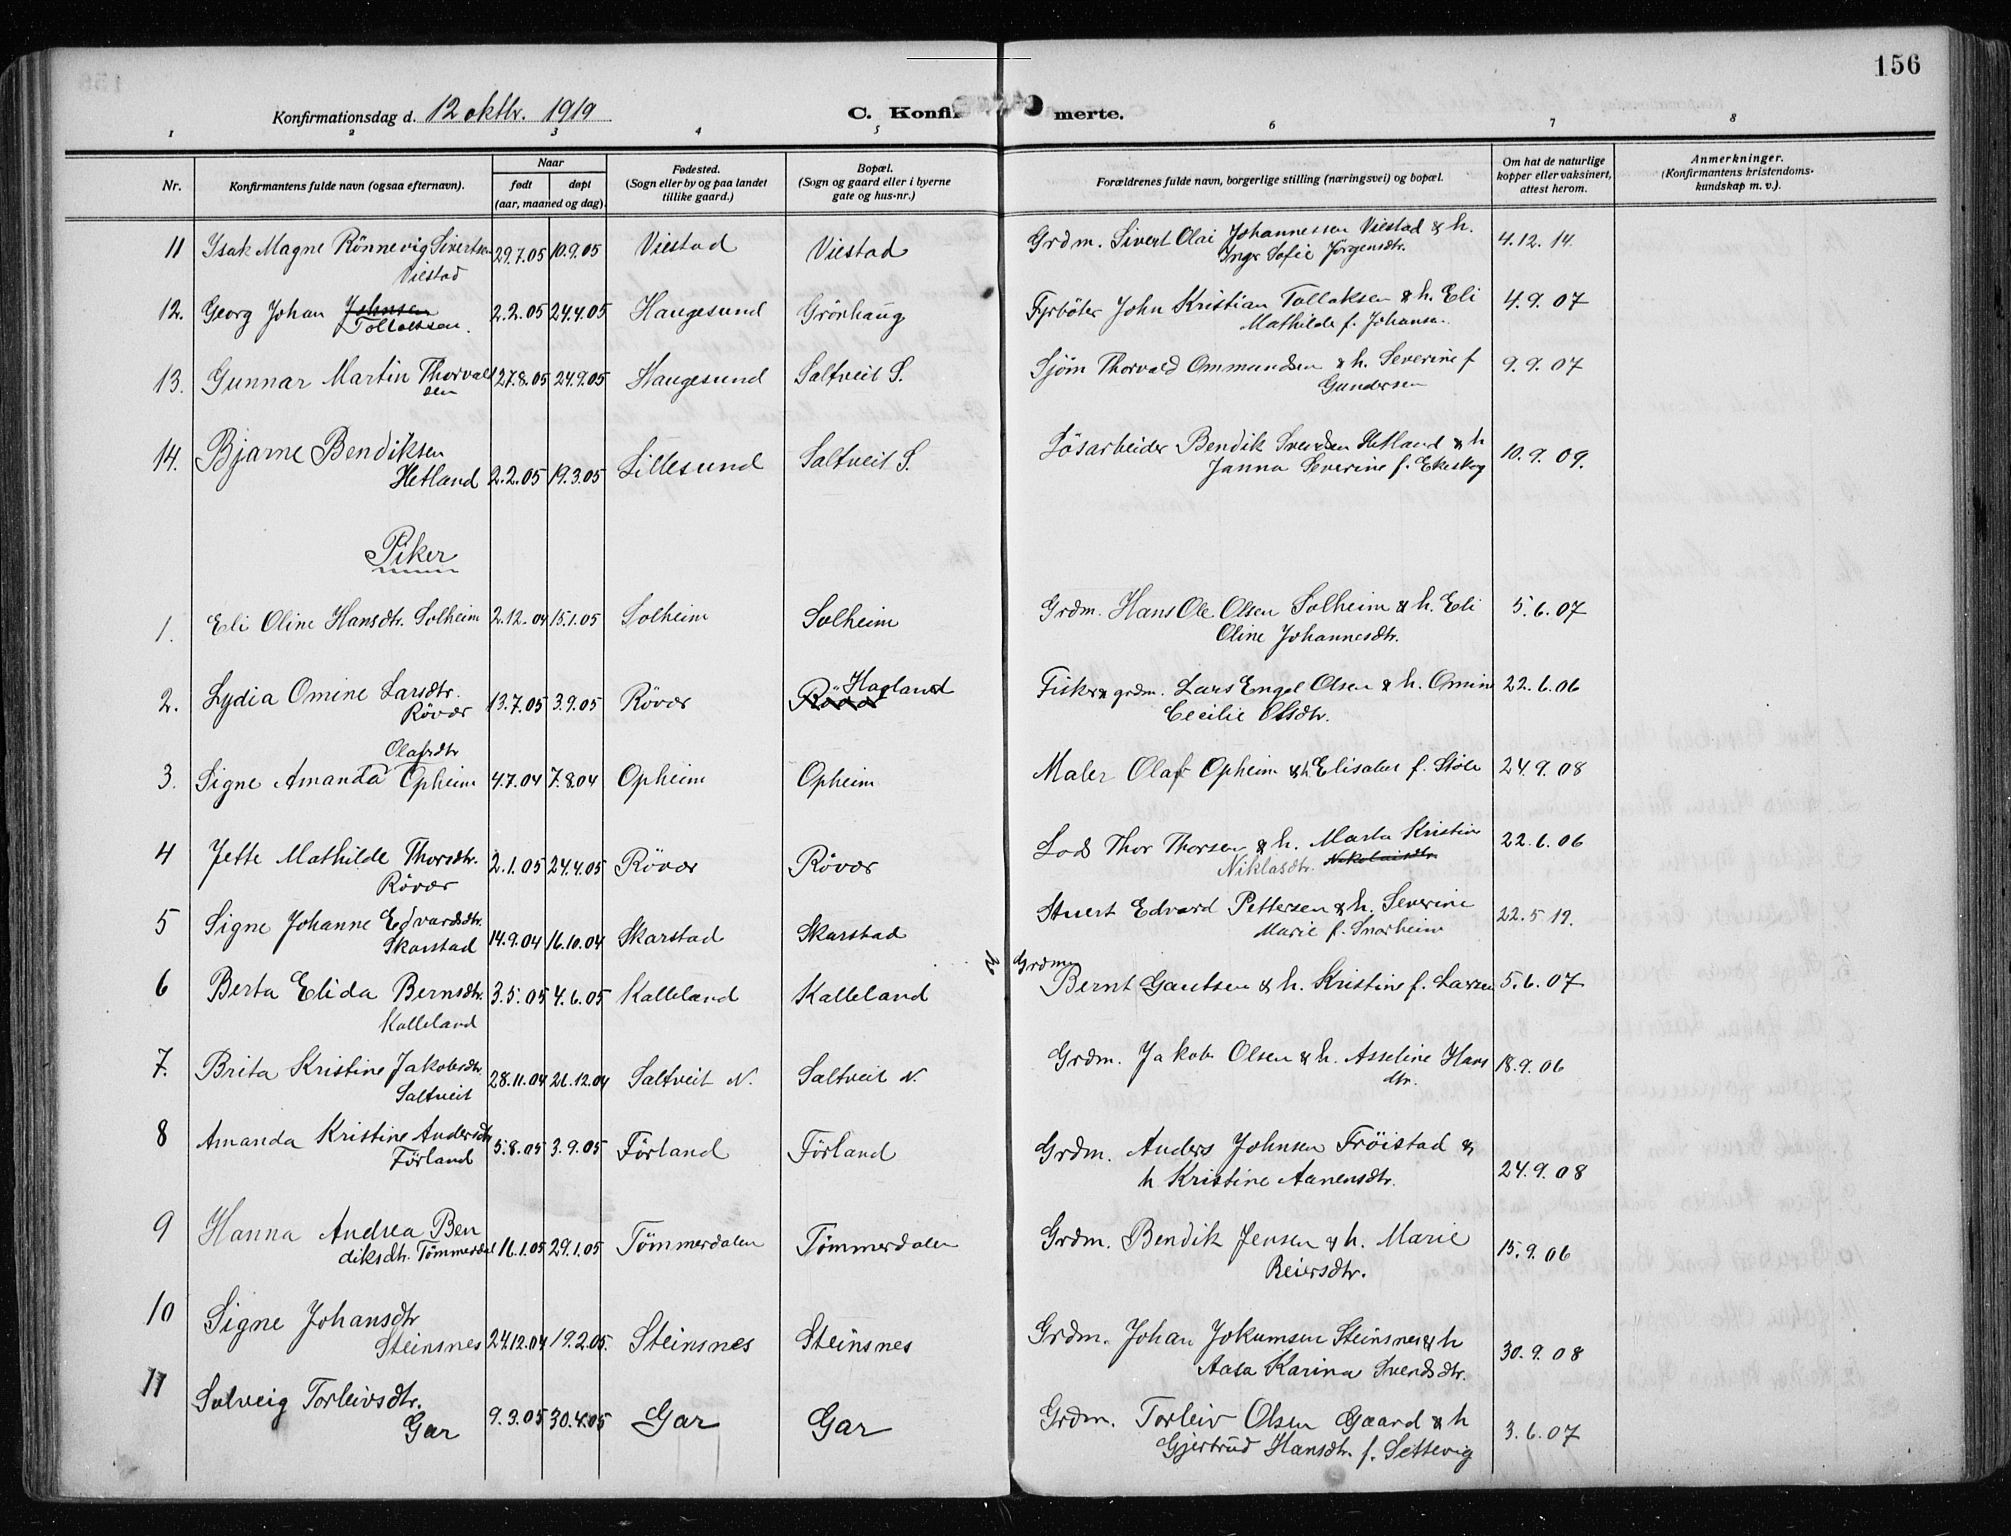 156
Konfirmationsdag d. 12 oktbr. 1919
C. Konfirmerte.
1 2 3 4 5 6 7 8
Nr. Konfirmantens fulde navn (ogsaa efternavn). Naar født døpt (aar, maaned og dag). Fødested. (Sogn eller by og paa landet tillike gaard.) Bopæl. (Sogn og gaard eller i byerne gate og hus-nr.) Forældrenes fulde navn, borgerlige stilling (næringsvei) og bopæl. Om hat de naturlige kopper eller vaksinert, attest herom. Anmerkninger. (Konfirmantens kristendoms-kundskap m. v.).
11 Isak Magne Rönnevig Sivertsen Viestad 29.7.05 10.9.05 Viestad Viestad Grdm. Sivert Olai Johannessen Viestad & h. Inga Sofie Jörgensdtr. 4.12.14
12. Georg Johan Johnsen Tollaksen. 2.2.05 24.4.05 Haugesund Grönhaug Fyrböter John Kristian Tollaksen & h. Eli Mathilde f. Johansen 4.9.07
13. Gunnar Martin Thorvaldsen 27.8.05 24.9.05 Haugesund Saltveit S. Sjöm Thorvald Ommundsen & h. Severine f Gundersen 9.9.07
14. Bjarne Bendiksen Hetland 2.2.05 19.3.05 Lillesund Saltveit S. Lösarbeider Bendik Svendsen Hetland & h Janna Severine f. Ekeskog 10.9.09.
Piker
1. Eli Oline Hansdtr. Solheim 2.12.04 15.1.05 Solheim Solheim Grdm. Hans Ole Olsen Solheim & h. Eli Oline Johannesdtr. 5.6.07
2. Lydia Omine Larsdtr. Rövær 13.7.05 3.9.05 Rövær Rövær Hagland Fisker & grdm. Lars Engel Olsen & h. Omine Cecilie Olsdtr. 22.6.06
3. Signe Amanda Olafsdtr Opheim 4.7.04 7.8.04 Opheim Opheim Maler Olaf Opheim & h Elisabet f. Stöle 24.9.08
4 Jette Mathilde Thorsdtr. Rövær 2.1.05 24.4.05 Rövær Rövær Lods Thor Thorsen & h. Marta Kristine Niklasdtr. Nikolaisdtr 22.6.06
5 Signe Johanne Edvardsdtr. Skarstad 14.9.04 16.10.04 Skarstad Skarstad Stuert Edvard Pettersen & h. Severine Marie f. Snorheim 22.5.19.
6 Berta Elida Berntsdtr. Kalleland 3.5.05 4.6.05 Kalleland Kalleland Grdm Bernt Gautsen & h. Kristine f. Larsen 5.6.07
7. Brita Kristine Jakobsdtr. Saltveit 28.11.04 26.12.04 Saltveit N. Saltveit N. Grdm. Jakob Olsen & h. Asseline Hansdtr. 18.9.06
8 Amanda Kristine Andersdtr Förland 5.8.05 3.9.05 Förland Förland Grdm. Anders Johnsen Fröistad & h Kristine Aanensdtr. 24.9.08
9 Hanna Andrea Bendiksdtr. Tömmerdal 16.1.05 29.1.05 Tömmerdalen Tömmerdalen Grdm. Bendik Jensen & h. Marie Reiersdtr. 15.9.06
10 Signe Johansdtr Steinsnes 24.12.04 19.2.05. Steinsnes Steinsnes Grdm. Johan Jokumsen Steinsnes & h Aasa Karina Svendsdtr. 30.9.08
11 Solveig Torleivsdtr. Gar 9.3.05 30.4.05 Gar Gar Grdm. Torleiv Olsen Gaard & h Gjertrud Hansdtr. f. Settevig 3.6.07